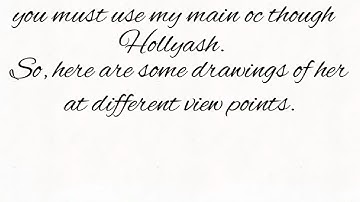 you must use my main oc though
Hollyash.
So, here are some drawings of her
at different view points.